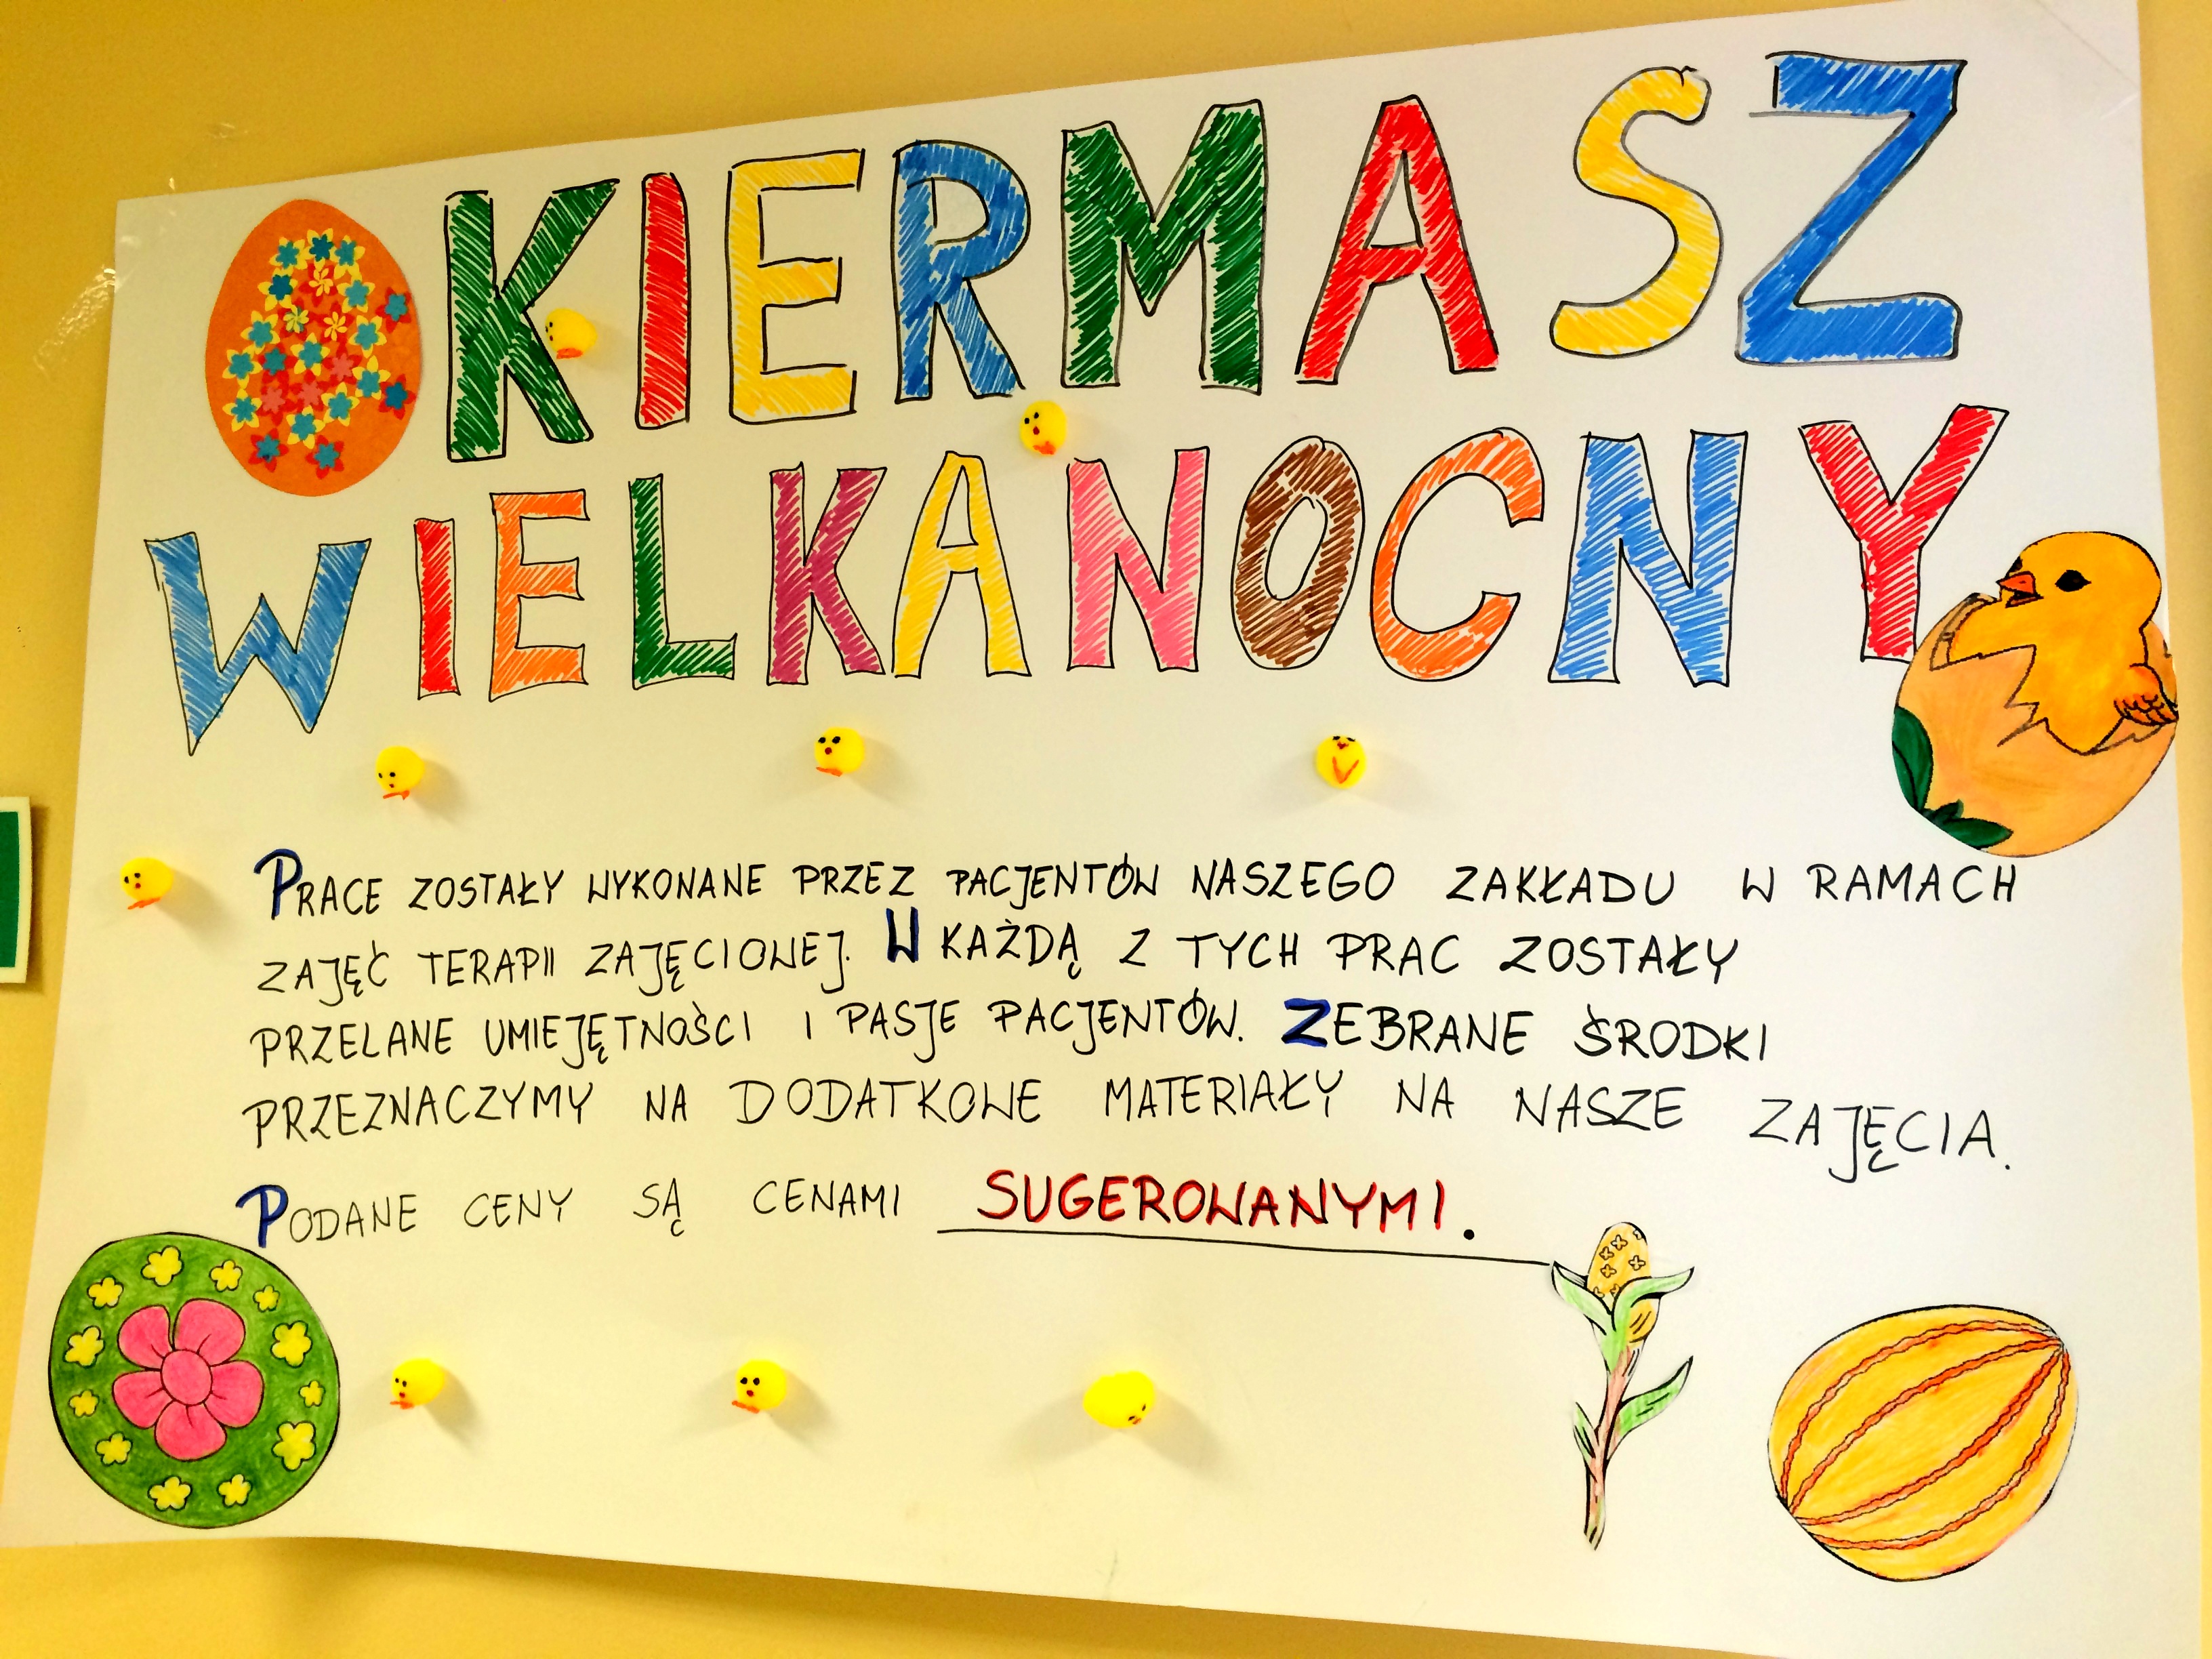 KIERMASZ
WIELKANOCNY
PRACE ZOSTAŁY WYKONANE PRZEZ PACJENTÓW NASZEGO ZAKŁADU W RAMACH
ZAJĘĆ TERAPII ZAJĘCIOWEJ. W KAŻDĄ Z TYCH PRAC ZOSTAŁY
PRZELANE UMIEJĘTNOŚCI I PASJE PACJENTÓW. ZEBRANE ŚRODKI
PRZEZNACZYMY NA DODATKOWE MATERIAŁY NA NASZE ZAJĘCIA.
PODANE CENY SĄ CENAMI SUGEROWANYMI.